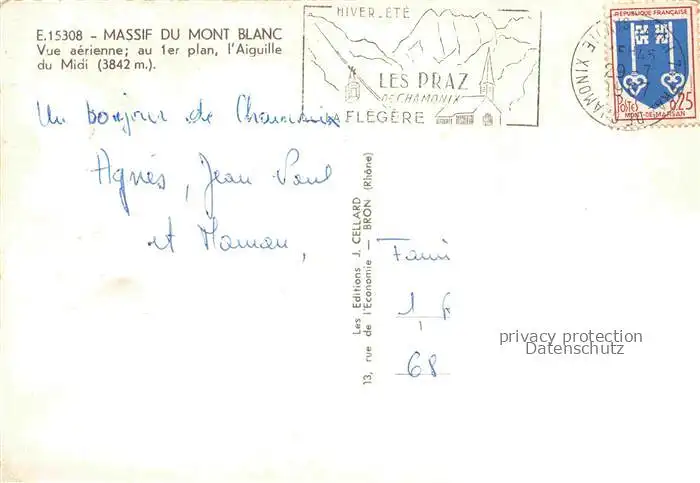 E.15308 - MASSIF DU MONT BLANC
Vue aérienne; au 1er plan, l'Aiguille
du Midi (3842 m.).
HIVER.ÉTÉ
LES PRAZ
DE CHAMONIX
FLÉGÈRE
RÉPUBLIQUE FRANÇAISE
POSTES
0,25
MONT-DE-MARSAN
Un bonjour de Chamonix
Agnès, Jean Paul
et Maman,
Les Editions J. CELLARD
13, rue de l'Economie - BRON (Rhône)
Fami
1
68
privacy protection
Datenschutz